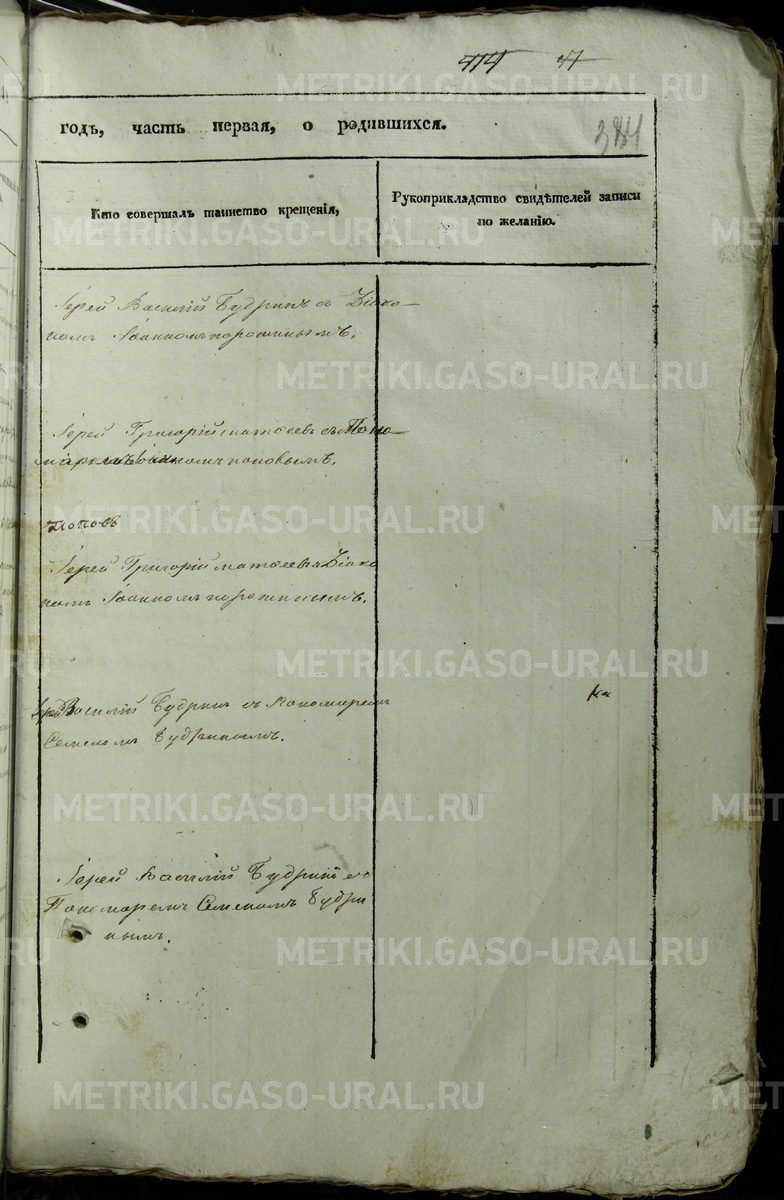 414 47
годъ, часть первая, о родившихся.
384
Кто совершалъ таинство крещенія,
Рукоприкладство свидѣтелей записи
по желанію.
Іерей Василій Будринъ съ Діако-
номъ Іоанномъ порошинымъ.
Іерей Григорій матѳеевъ съ Поно-
маремъ Іоанномъ поповымъ.
поповъ
Іерей Григорій матѳеевъ Діако
номъ Іоанномъ порошинымъ.
Іерей Василій Будринъ съ пономаремъ
Семеномъ Будринымъ.
Іерей Василій Будринъ съ
Пономаремъ Семеномъ Будри
нымъ.
METRIKI.GASO-URAL.RU